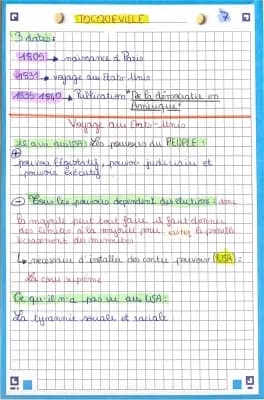 TOCQUEVILLE
7
3 dates :
1805 → naissance à Paris
1831 → voyage aux Etats-Unis
1835-1840 → Publication "De la démocratie en
Amérique"
Voyage aux Etats-Unis
Il a vu aux USA : Les pouvoirs du PEUPLE :
+
pouvoir législatif, pouvoir judiciaire et
pouvoir exécutif
- Tous les pouvoirs dependent des élections : donc
la majorité peut tout faire il faut donner
des limites à la majorité pour eviter le possible
écrasement des minorités
↳ necessaire d'installer des contre pouvoir (USA) :
La cour suprême
Ce qu'il n'a pas vu aux USA :
La tyrannie sociale et raciale